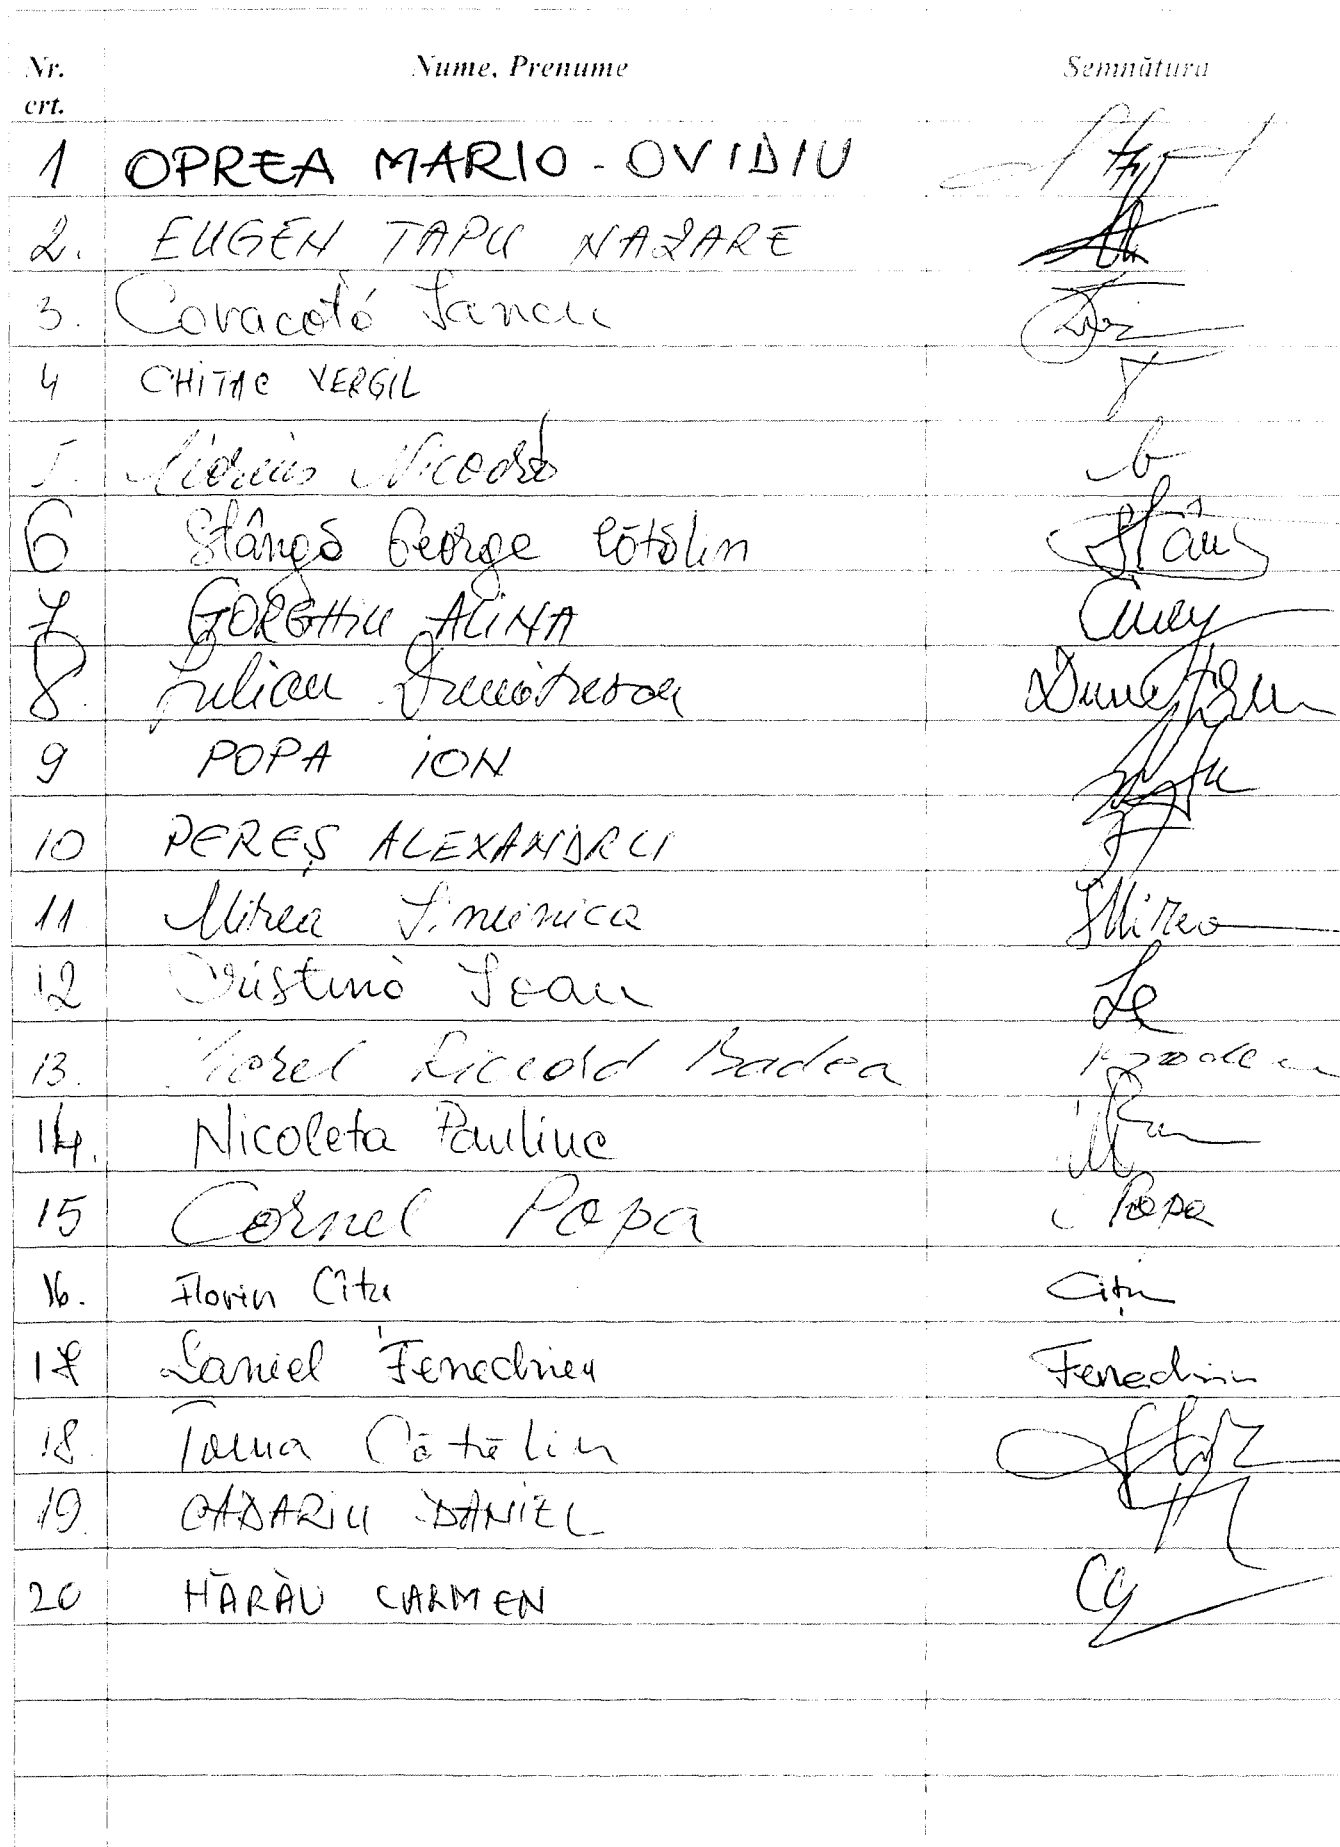 Nr. crt. Nume, Prenume Semnătura
1 OPREA MARIO-OVIDIU
2. EUGEN TAPU NAZARE
3. Covacotă Iancu
4 CHITAC VERGIL
5. Nicoară
6 Stângă George Cătălin Stân
7 GORGHIU ALINA
8. Iulian Dumitrescu
9 POPA ION
10 PEREȘ ALEXANDRU
11 Mirea Siminica SMirea
12 Cristina Ioan
13. Viorel Riceard Badea Badea
14. Nicoleta Pauliuc
15 Cornel Popa Popa
16. Florin Cîtu Cițu
17 Daniel Fenechiu Fenechiu
18. Toma Cătălin
19. CADARIU DANIEL
20 HĂRĂU CARMEN